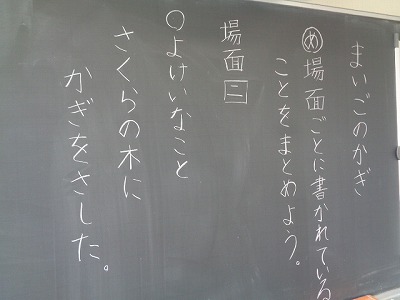 まいごのかぎ
め場面ごとに書かれている
ことをまとめよう。
場面二
○よけいなこと
さくらの木に
かぎをさした。